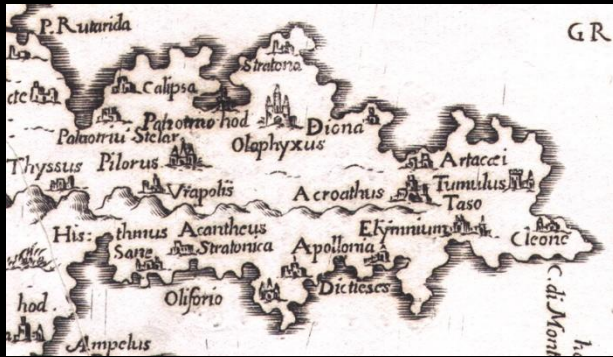 P. Rutarida
GR
Stratone
Calipsa
cte
Patrotrno hod
Palaotriu Stelar
Diona
Olophyxus
Thyssus
Pilorus
Artacæi
Vrapolis
Acroathus
Tumulus
Taso
His:
thmus
Acantheus
Elymnium
Cleone
Sane
Stratonica
Apollonia
Oliforio
Dictieses
hod
Ampelus
C. di Mon